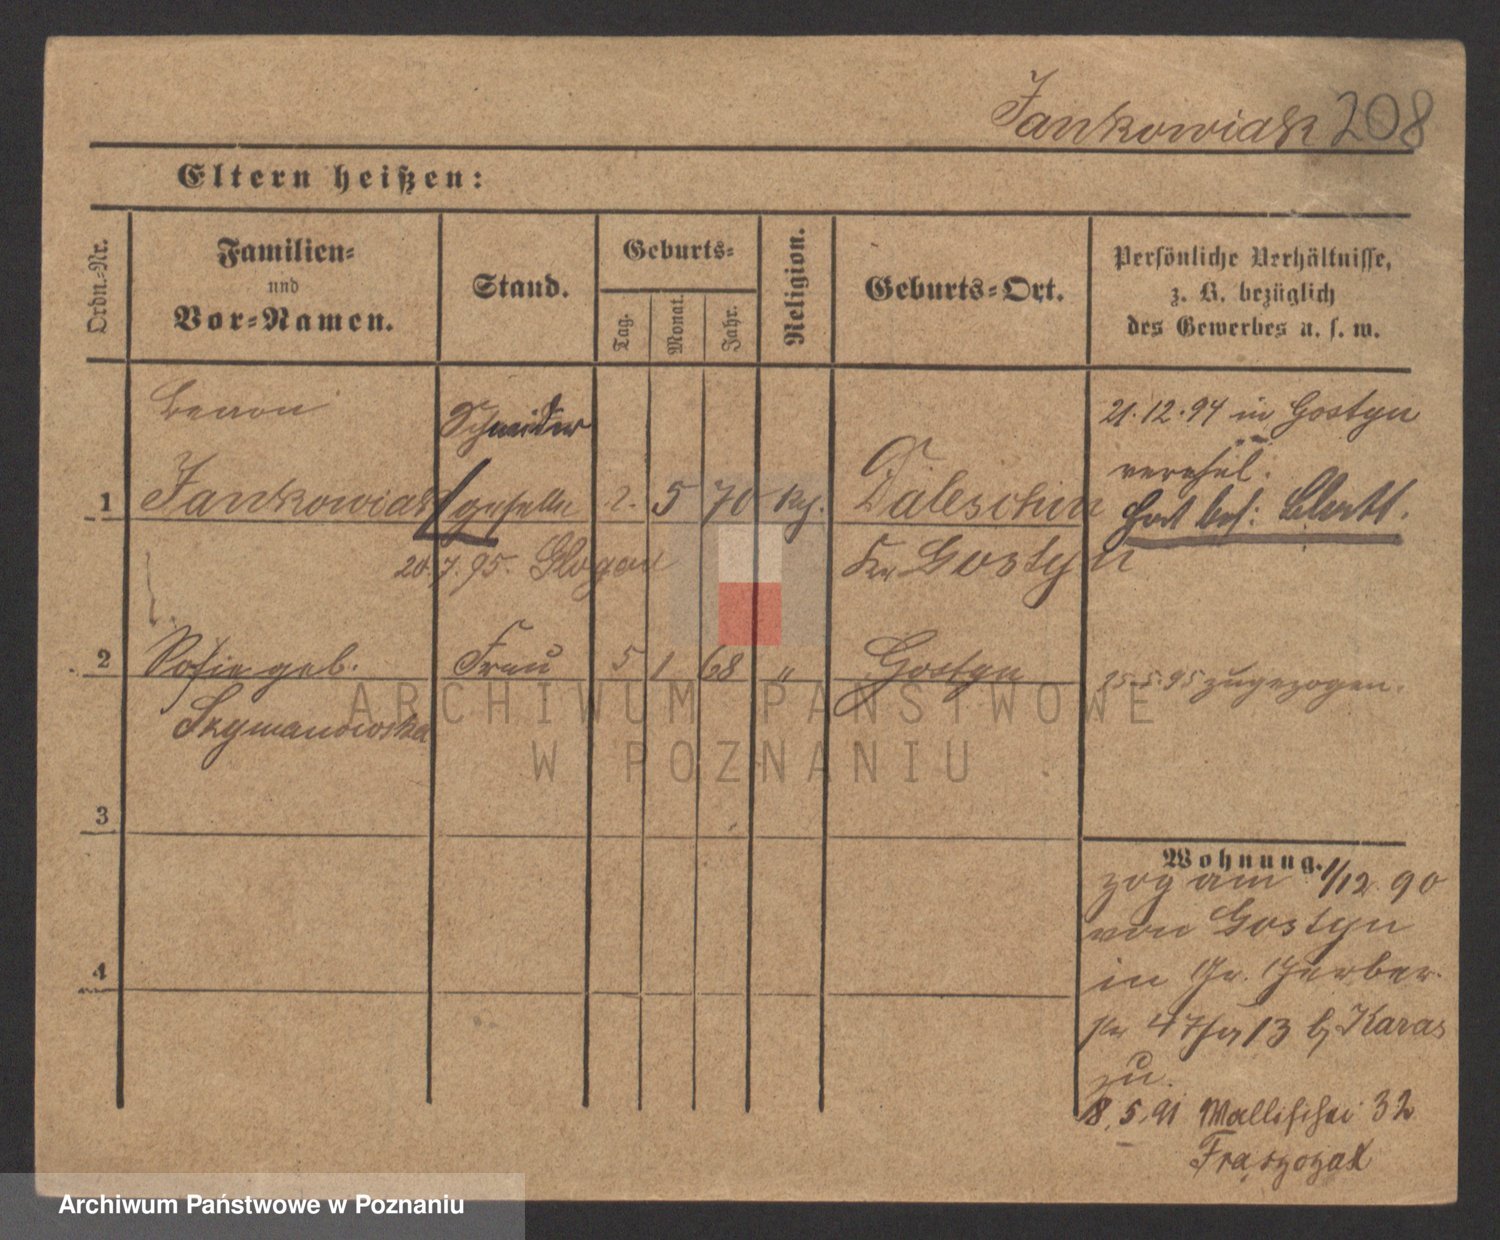 Jankowiak 208
Eltern heißen:
Ordn.-Nr.
Familien-
und
Vor-Namen.
Stand.
Geburts-
Tag.
Monat.
Jahr.
Religion.
Geburts-Ort.
Persönliche Verhältnisse,
z. B. bezüglich
des Gewerbes u. s. w.
Schneider
21.12.94 in Gostyn
verehel.
1 Jankowiak geselle 2. 5 70 kth. Daleschin
Hat bes:
20.7.95. Glogau
Kr. Gostyn
2 Sofie geb. Frau 5 1 68 " Gostyn
25.5.95 zugezogen.
Szymanowska
ARCHIWUM PAŃSTWOWE
W POZNANIU
3
Wohnung.
zog am 1/12 90
von Gostyn
4
in Gr. Gerber-
str 47 13 b/ Karas
zu.
18.5.91 Wallischei 32
Frąszczak
Archiwum Państwowe w Poznaniu